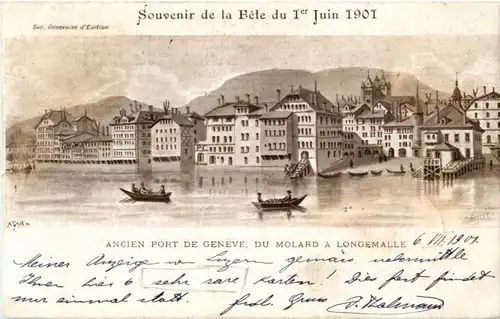 Souvenir de la Fête du 1er Juin 1901
Soc. Génevoise d'Edition
ANCIEN PORT DE GENEVE, DU MOLARD A LONGEMALLE
6. VII. 1901.
Meiner Anzeige von Luzern gemäss übermittle
Ihnen hier 6 sehr rare Karten! Dies fest findet
nur einmal statt. frdl. Gruss